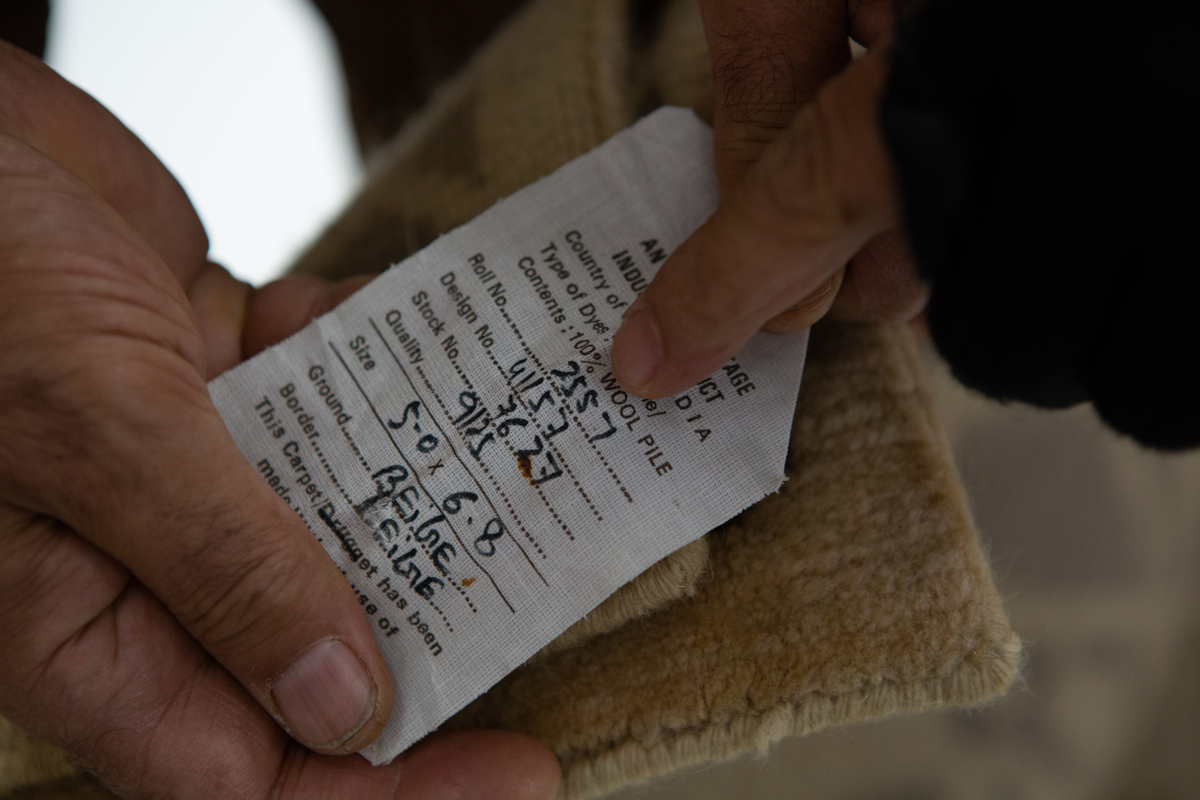 AN AGE
INDU CT
Country of D I A
Type of Dyes
Contents : 100% WOOL PILE
Roll No. 2557
Design No. 4157
Stock No. 3627
Quality 9/25
Size 5-0 x 6.8
Ground BEIGE
Border BEIGE
This Carpet Drugget has been
made use of